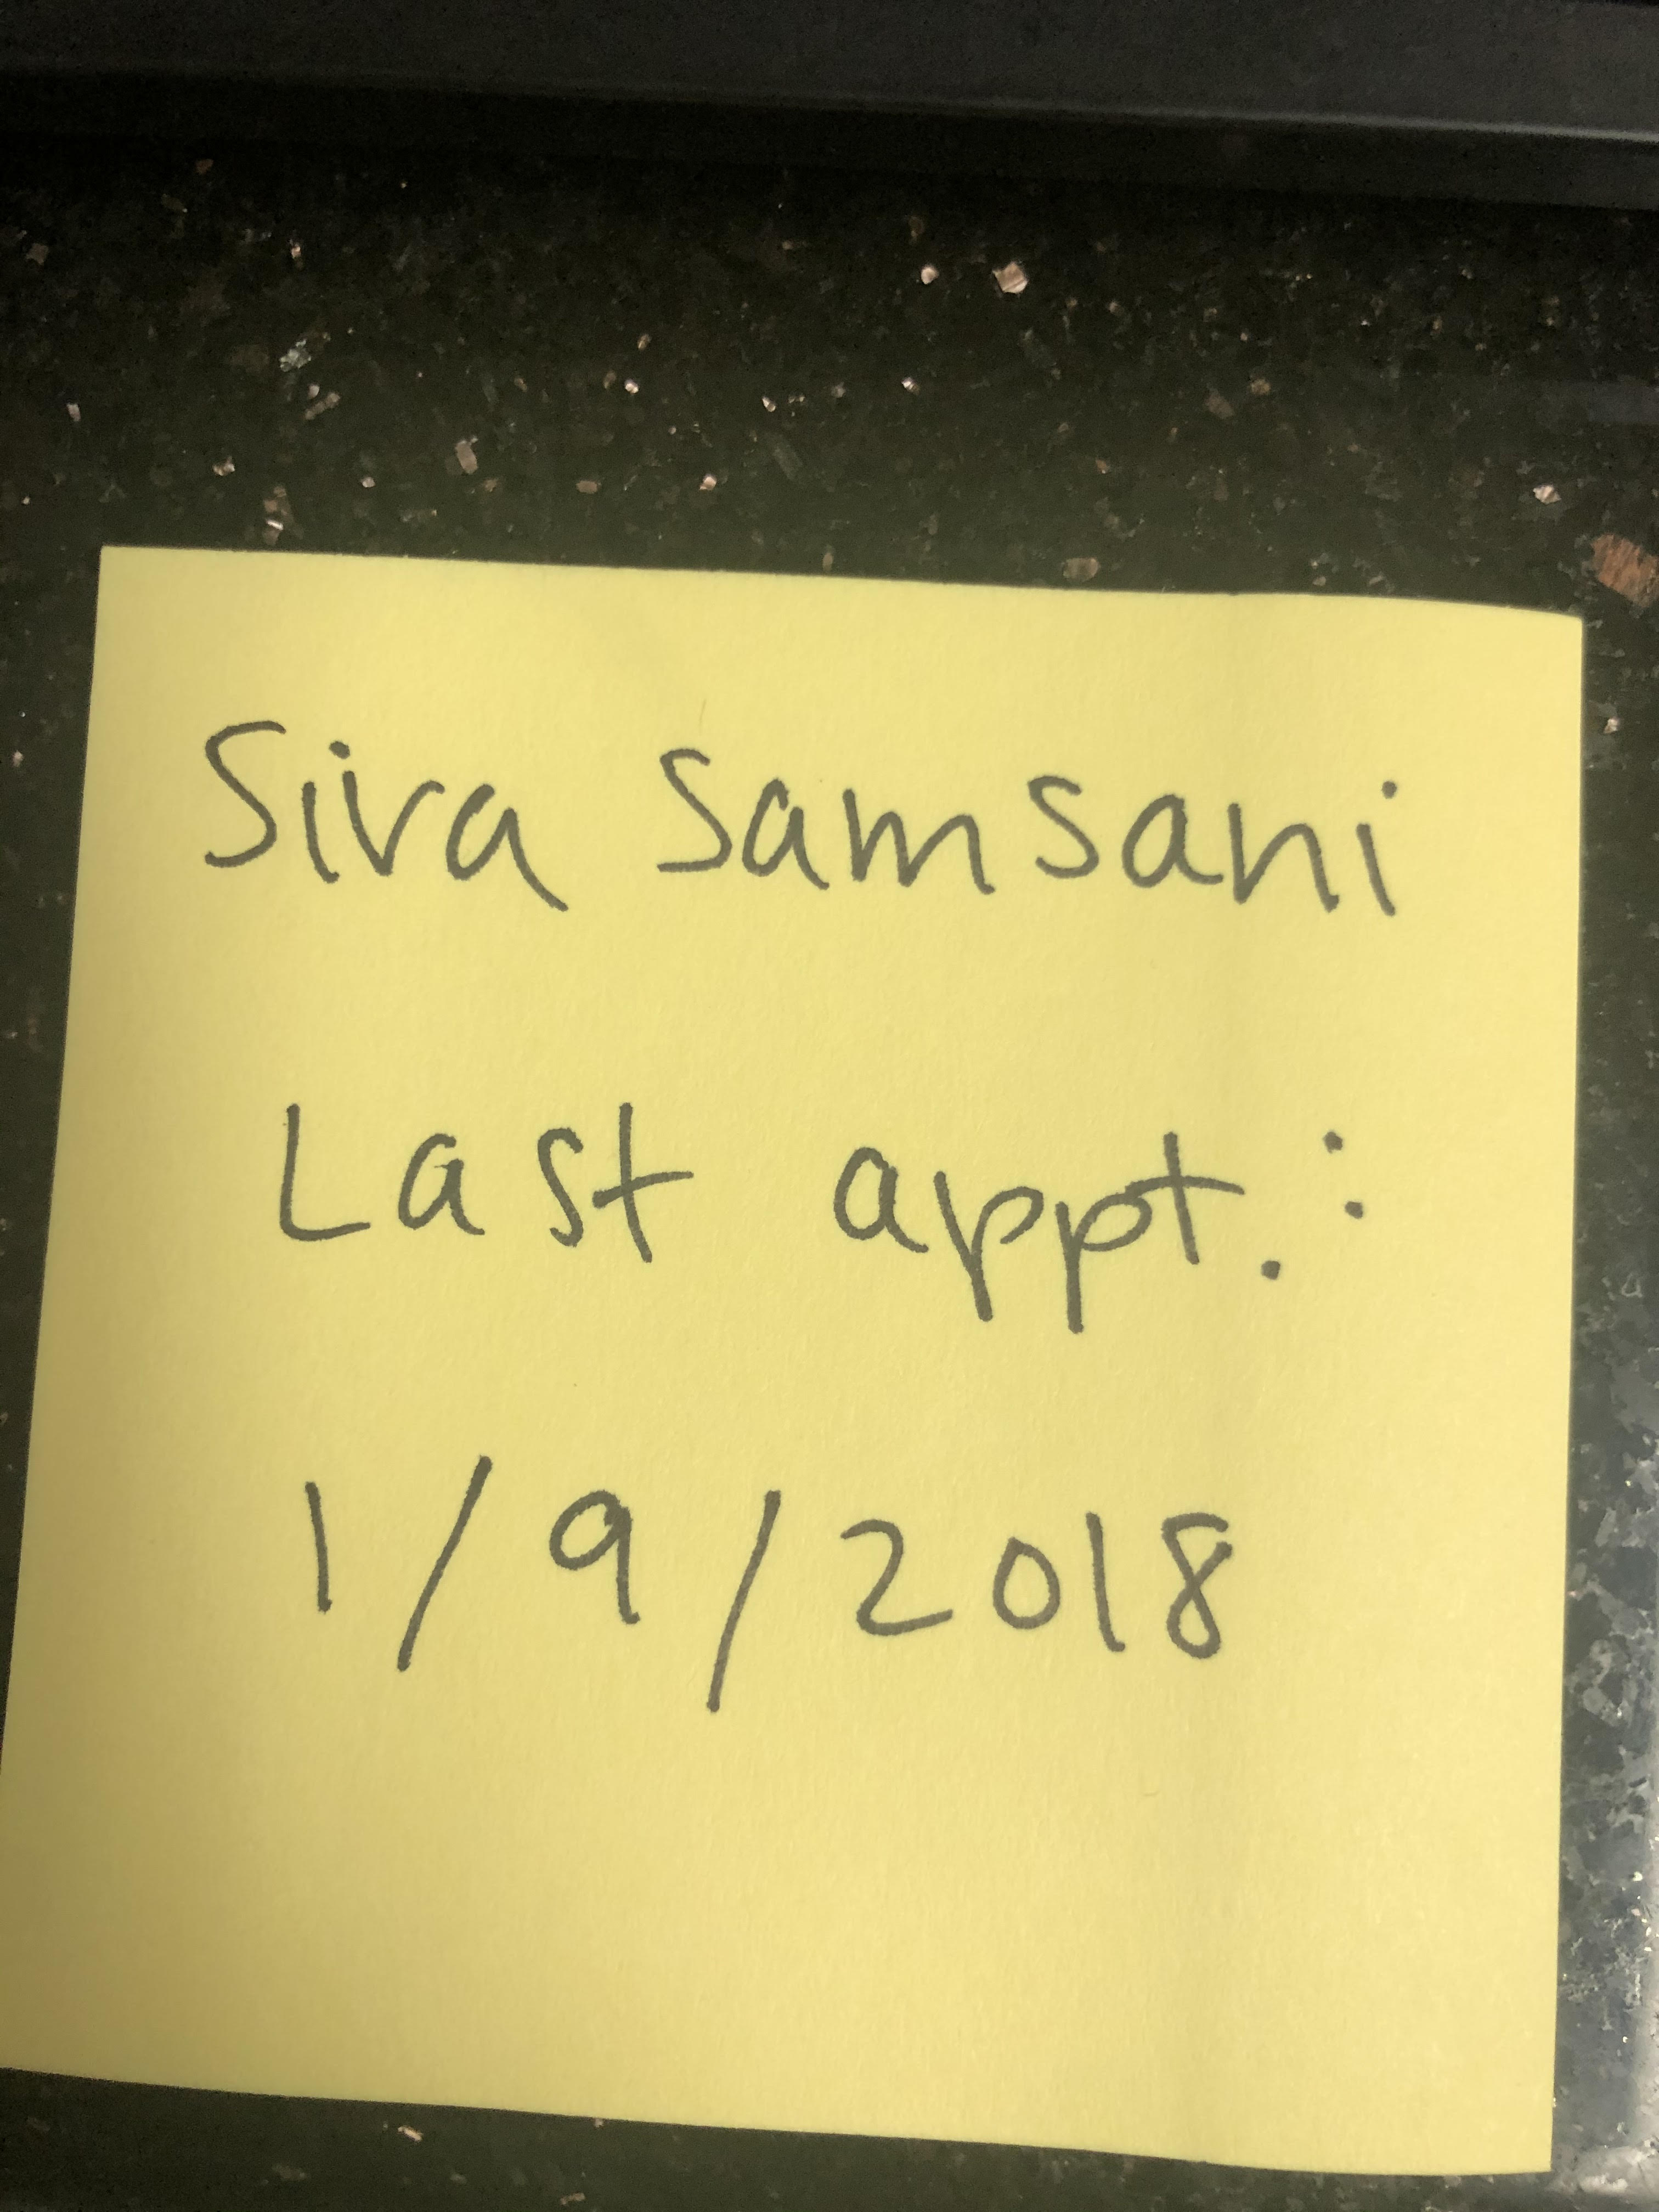 Siva Samsani
Last appt.:
1/9/2018